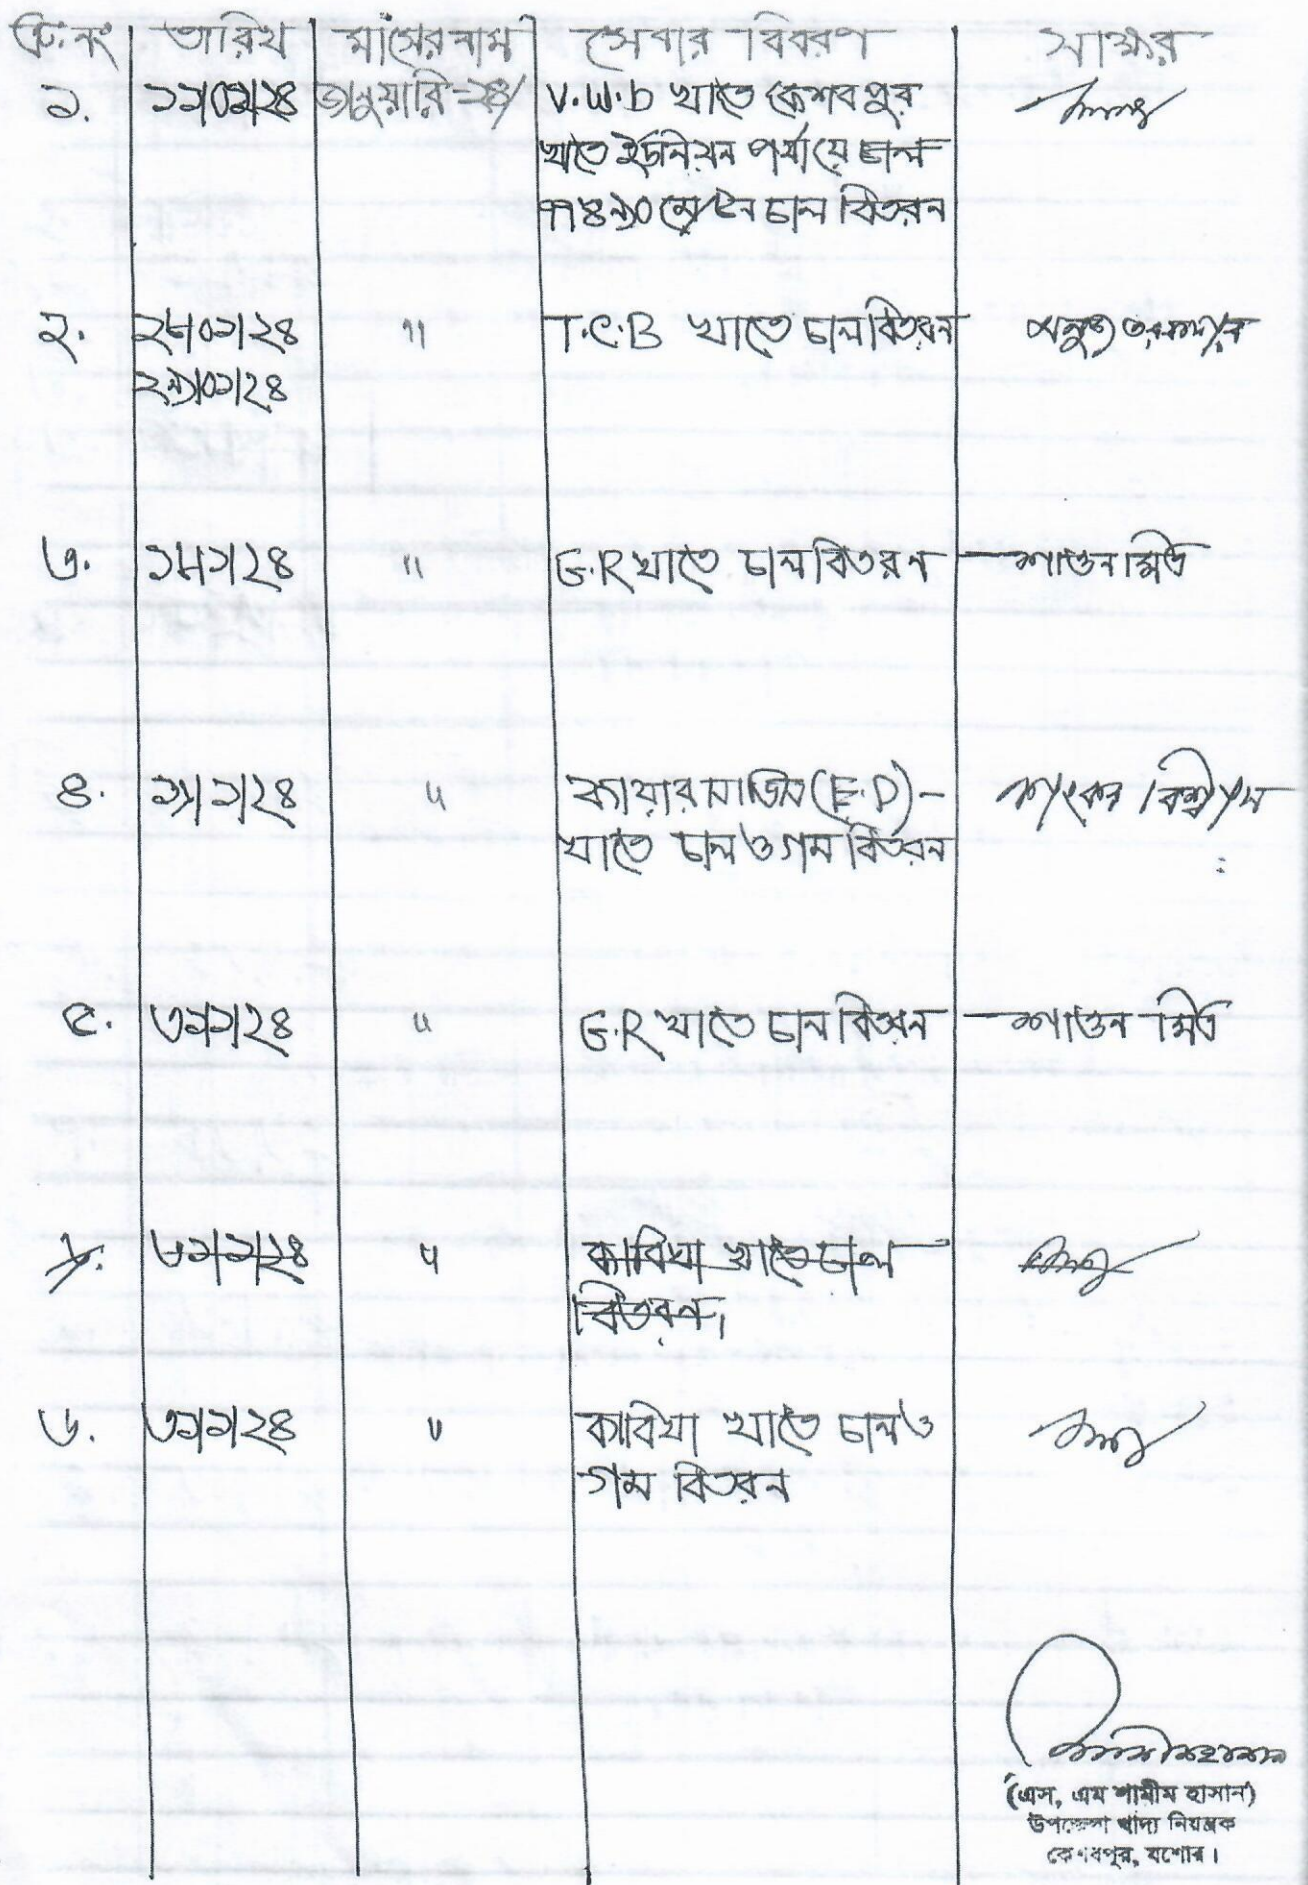 ক্রি.নং তারিখ মাসের নাম সেবার বিবরণ সাক্ষর
১. জানুয়ারি-২৪/ V.W.D খাতে কেশবপুর
খাতে ইউনিয়ন পর্যায়ে চাল
চাল বিতরন
২. ২৮/০১/২৪ " T.C.B খাতে চাল বিতরন
২৯/০১/২৪
৩. " G.R খাতে চাল বিতরন শাওন মিত্র
৪. " (E.D)-
খাতে চাল ও গম বিতরন শংকর বিশ্বাস
৫. ৩১/১/২৪ " G.R খাতে চাল বিতরন শাওন মিত্র
৩১/১/২৪ " কাবিখা খাতে চাল
বিতরন।
৬. ৩১/১/২৪ " কাবিখা খাতে চাল ও
গম বিতরন
(এস, এম শামীম হাসান)
উপজেলা খাদ্য নিয়ন্ত্রক
কেশবপুর, যশোর।